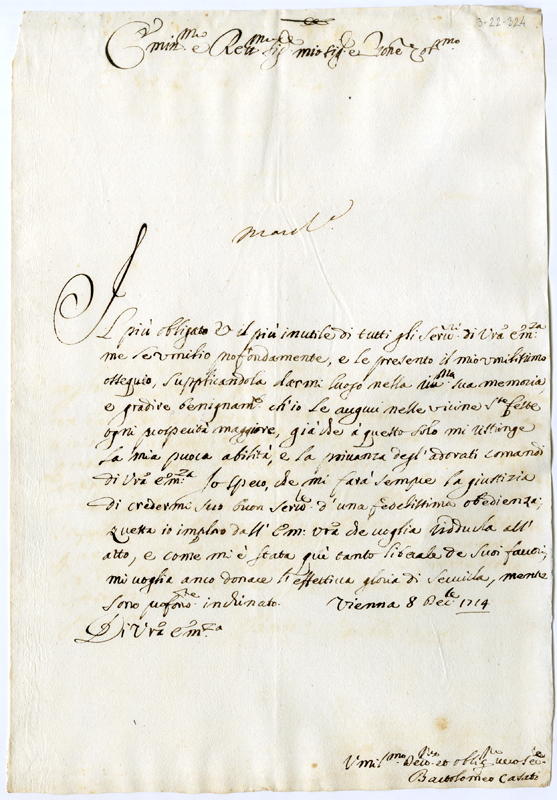 3-22-324
Em.mo e Rev.mo Sig.e mio Sig.e e Pñe Col.mo
Il più obligato et il più inutile di tutti gli Ser.ri di Vrã Em.za
me se umilio profondamente, e le presento il mio umilissimo
ossequio, supplicandola darmi luogo nella sua memoria
e gradire benignam.e ch'io le auguri nelle vicine S.te feste
ogni prosperità maggiore, già che à questo solo mi ristringe
la mia puoca abilità, e la privanza degl'adorati comandi
di Vrã Em.za Io spero, che mi farà sempre la giustizia
di credermi suo buon Ser.re d'una fedelissima obedienza;
questa io imploro dall'Em: Vrã che voglia ridurla all'
atto, e come mi è stata quì tanto liberale de suoi favori,
mi voglia anco donare l'effettiva gloria di servirla, mentre
sono profon.te inchinato. Vienna 8 Dec.bre 1714
Di Vrã Em.za
Umil.mo Devo. et oblig. vero Ser.e
Bartolomeo Casati